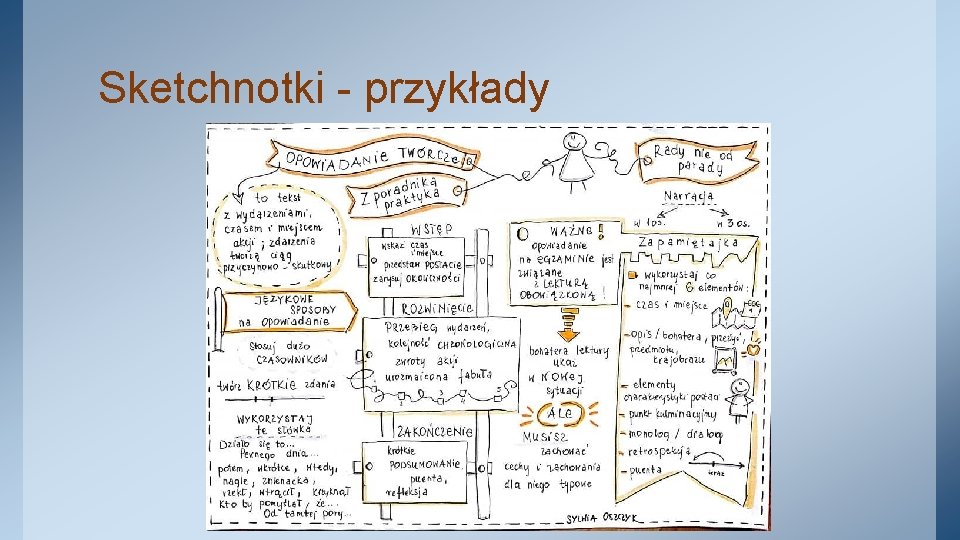 Sketchnotki - przykłady
OPOWIADANIE TWÓRCZE
to tekst
z wydarzeniami,
czasem i miejscem
akcji; zdarzenia
tworzą ciąg
przyczynowo-skutkowy
JĘZYKOWE
SPOSOBY
na opowiadanie
Stosuj dużo
CZASOWNIKÓW
twórz KRÓTKIE zdania
WYKORZYSTAJ
te słówka
Działo się to...
Pewnego dnia...
potem, wkrótce, wtedy,
nagle, znienacka,
rzekł, wtrącił, krzyknął
Kto by pomyślał, że....
Od tamtej pory...
Z poradnika
praktyka
WSTĘP
WSKAŻ CZAS
i miejsce
przedstaw POSTACIE
zarysuj OKOLICZNOŚCI
ROZWINIĘCIE
Przebieg wydarzeń,
kolejność CHRONOLOGICZNA
zwroty akcji
urozmaicona fabuła
ZAKOŃCZENIE
krótkie
PODSUMOWANIE
puenta,
refleksja
WAŻNE!
opowiadanie
na EGZAMINIE jest
związane
z LEKTURĄ
OBOWIĄZKOWĄ!
bohatera lektury
ukaż
w NOWEJ
sytuacji
ALE
MUSISZ
zachować
cechy i zachowania
dla niego typowe
Rady nie od
parady
Narracja
w 1os. w 3 os.
Zapamiętajka
wykorzystaj co
najmniej 6 elementów:
- czas i miejsce
- opis / bohatera, przeżyć,
przedmiotu,
krajobrazu
- elementy
charakterystyki postaci
- punkt kulminacyjny
- monolog / dialog
- retrospekcja
teraz
- puenta
SYLWIA OSZCZYK